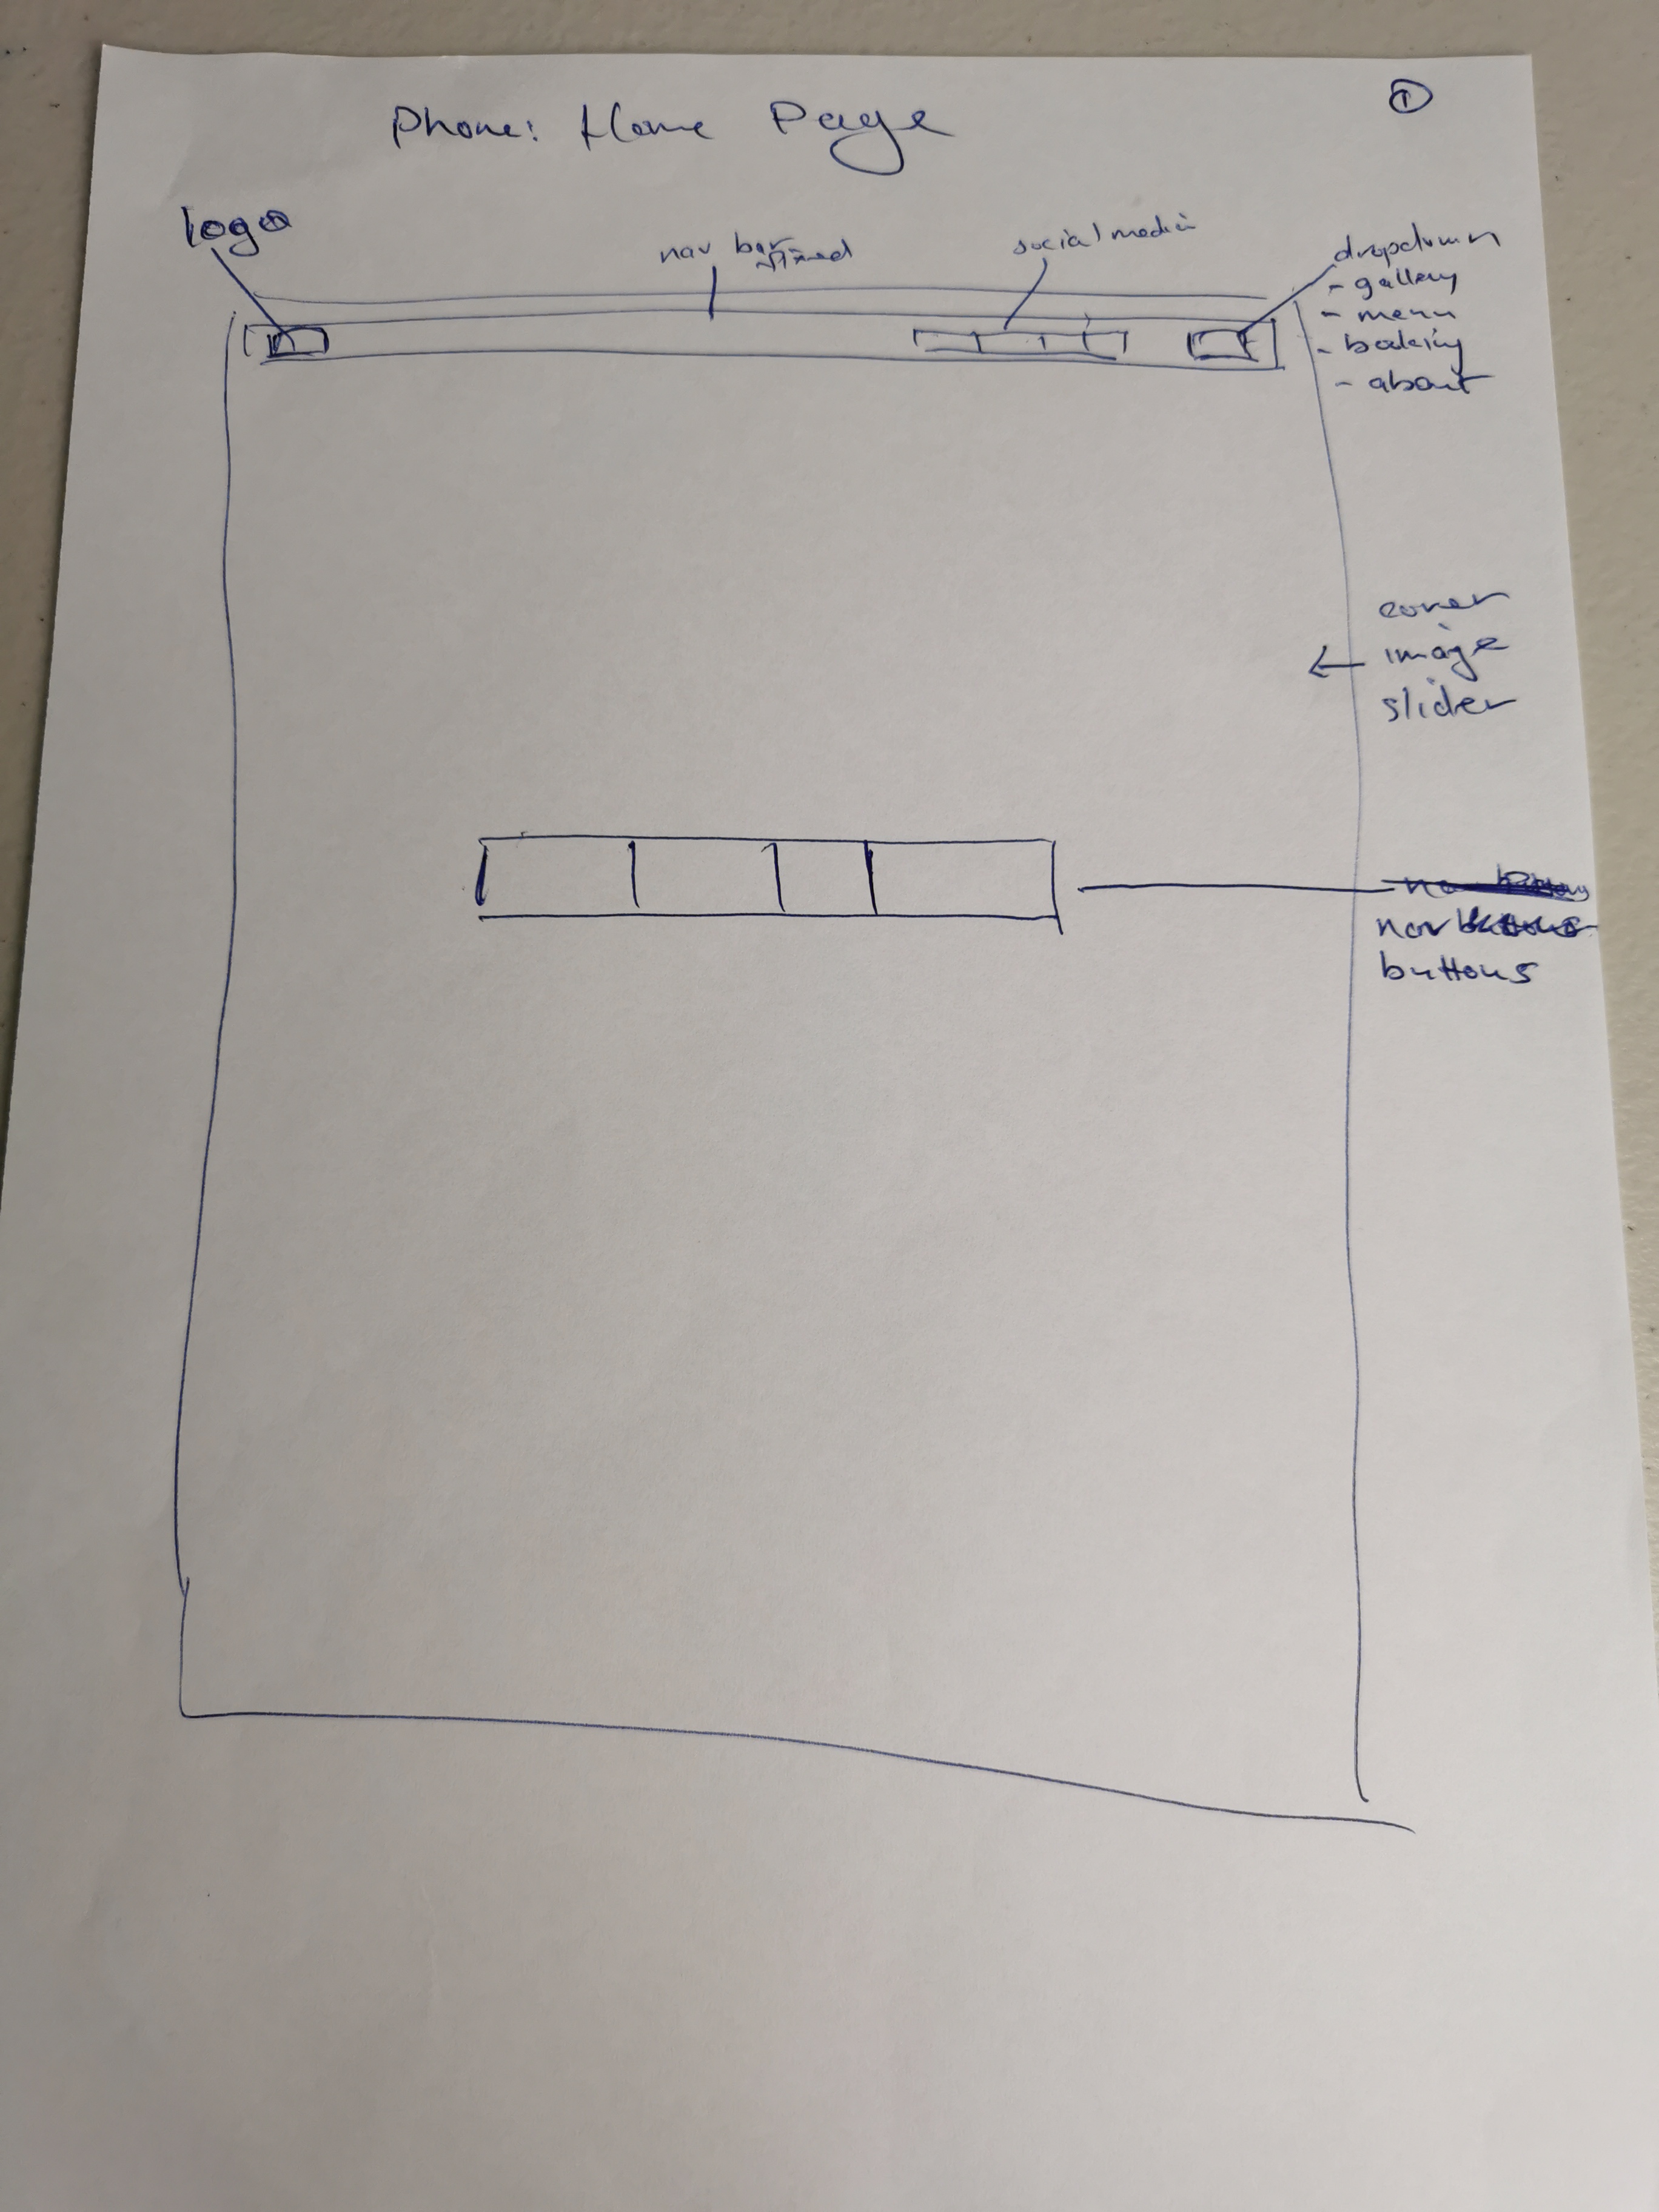 Phone: Home Page
1
logo
nav bar fixed
social media
dropdown
- gallery
- menu
- booking
- about
cover
image
slider
nav
buttons